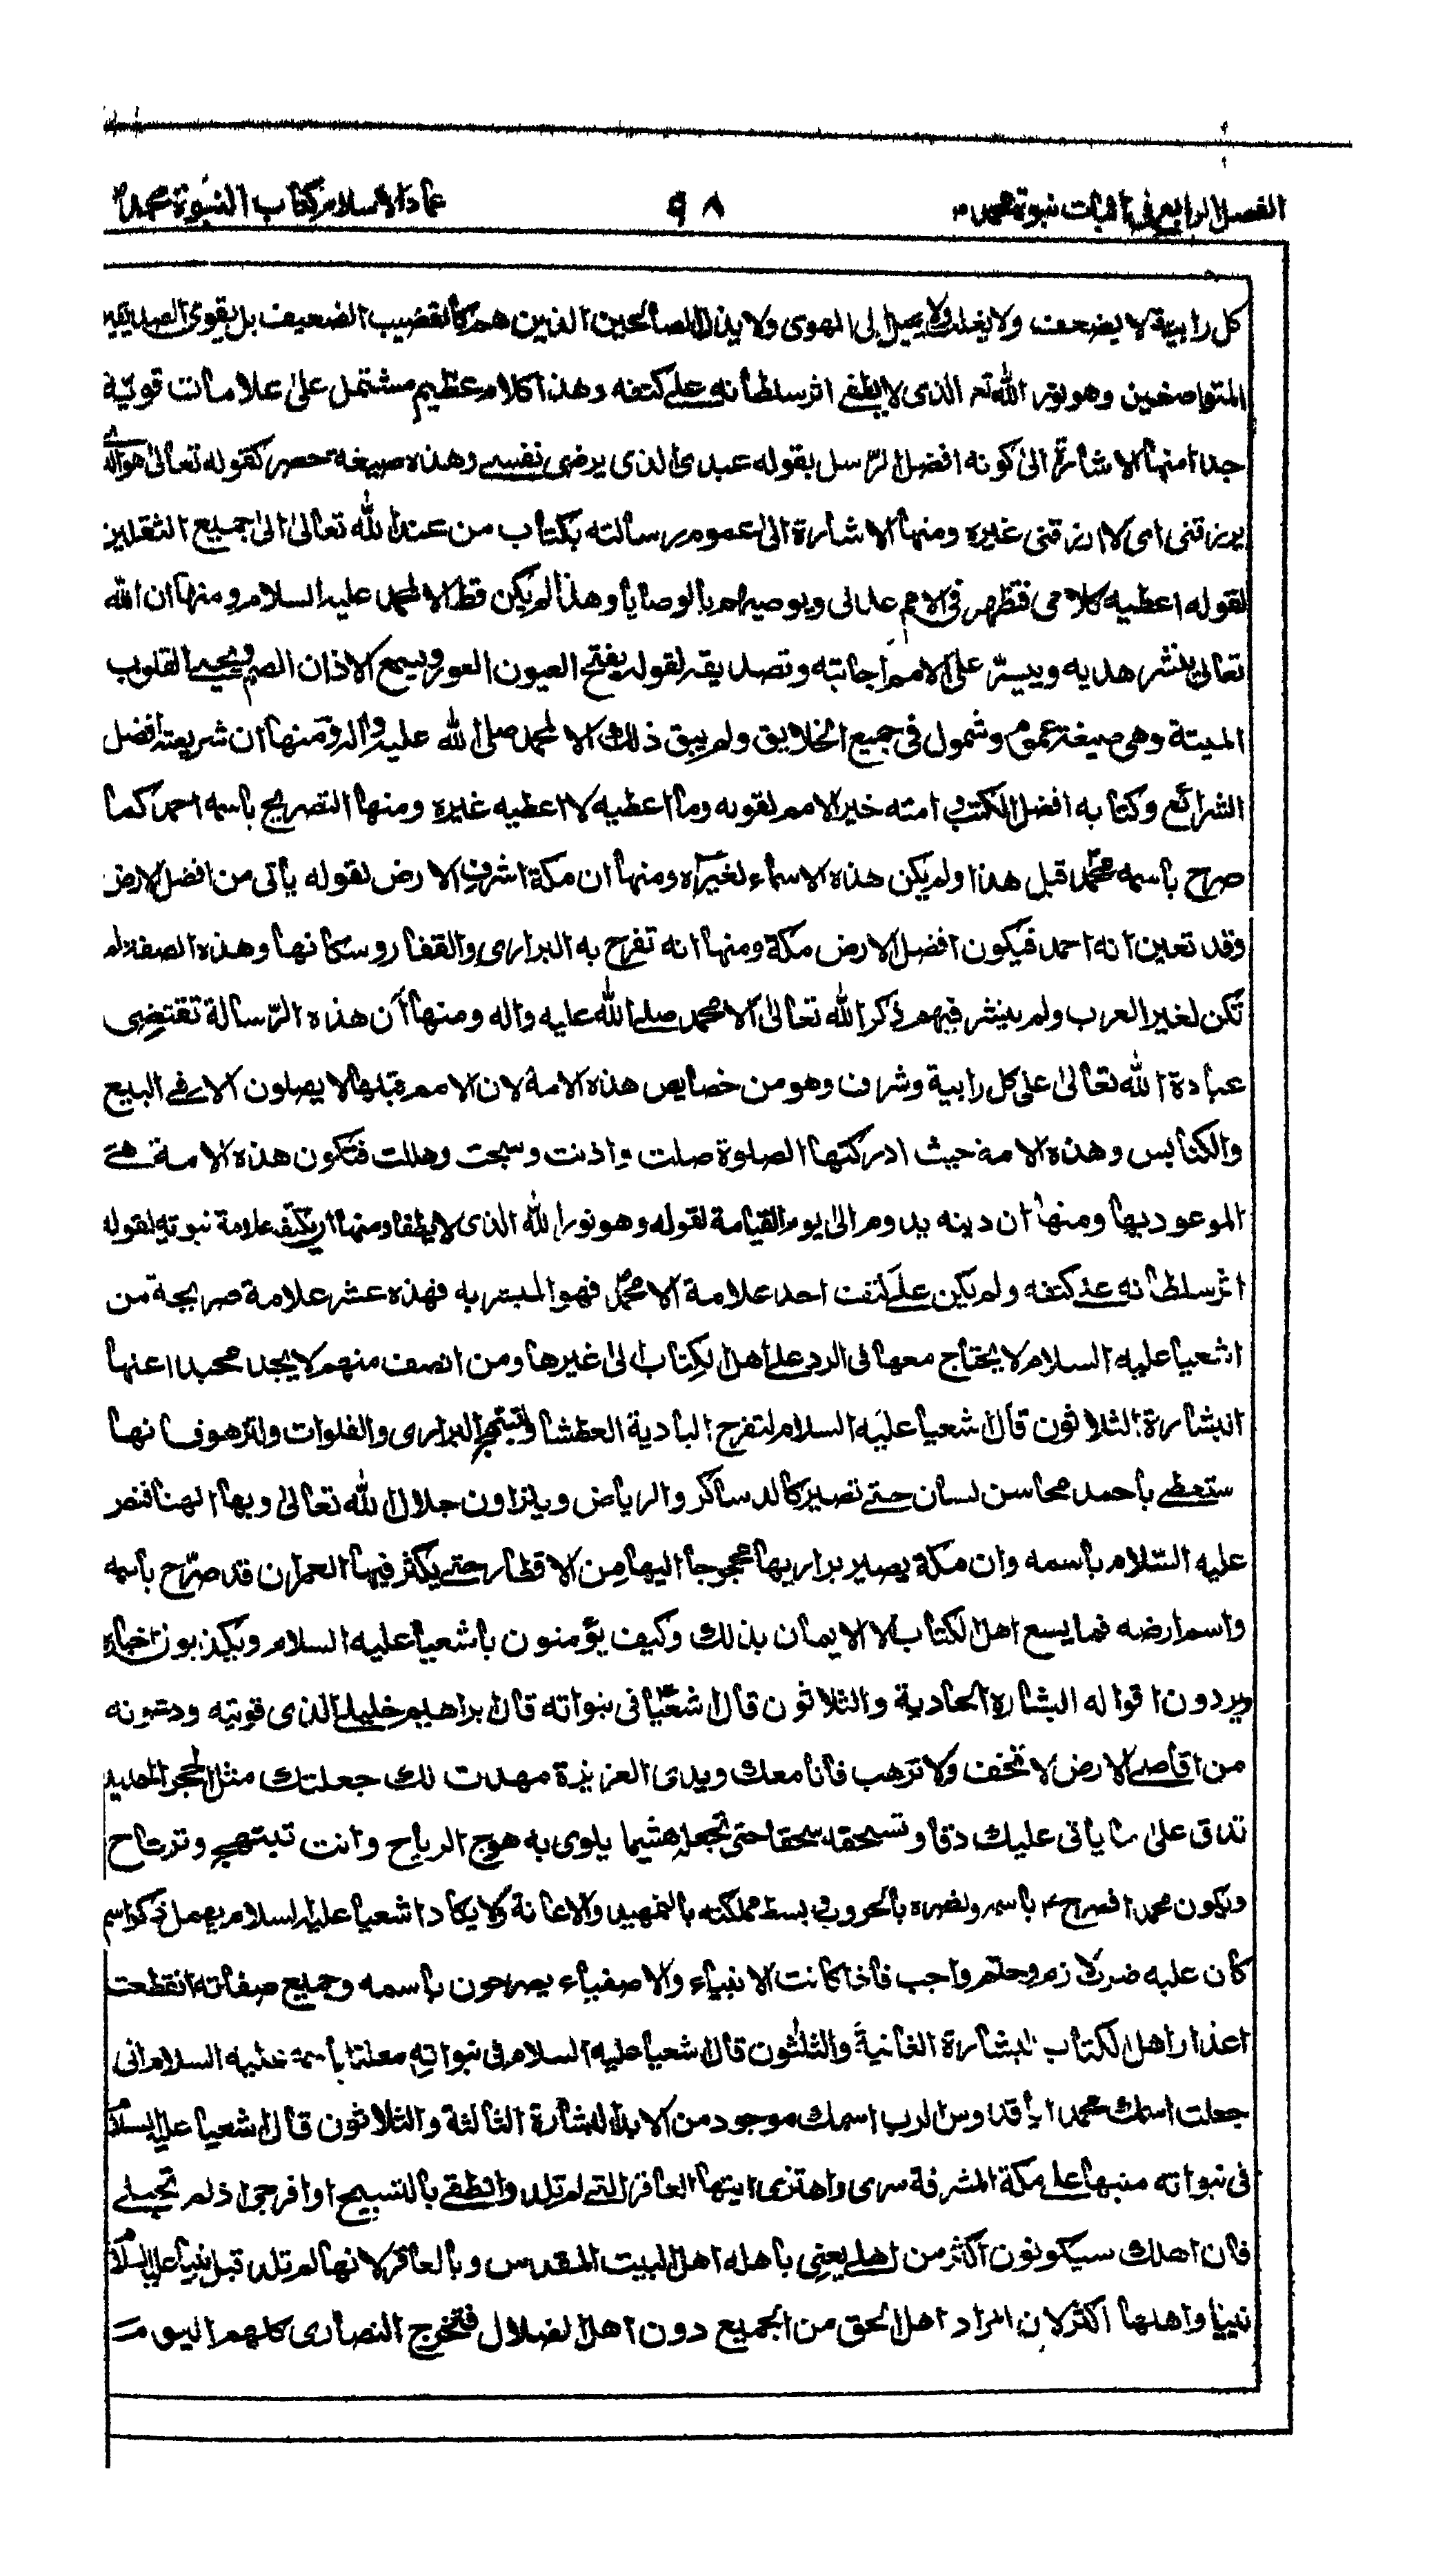 الفصل الرابع في اثبات نبوة محمد ٩٨ عماد الاسلام كتاب النبوة محمد
كل رابية لا يضعف ولا يغلب ولا يميل الى الهوى ولا يذل الصالحين الذين هم كالقضيب الضعيف بل يقوى الصديقين
المتواضعين وهو نور الله تم الذى لا يطفى اثر سلطانه على كتفه وهذا كلام عظيم مشتمل على علامات قوية
جدا منها الاشارة الى كونه افضل الرسل بقوله عبدى الذى يرضى نفسى وهذه صيغة حصر كقوله تعالى هو الذى
يرزقنى اى لا يرزقنى غيره ومنها الاشارة الى عموم رسالته بكتاب من عند الله تعالى الى جميع الثقلين
لقوله اعطيه كلامى فتظهر فى الامم عدلى ويوصيهم بالوصايا وهذا لم يكن قط الا لمحمد عليه السلام ومنها ان الله
تعالى ينشر هديه وييسر على الامم اجابته وتصديقه لقوله يفتح العيون العور ويسمع الاذان الصم ويحيى القلوب
الميتة وهى صيغة عموم وشمول فى جميع الخلايق ولم يبق ذلك الا لمحمد صلى الله عليه واله ومنها ان شريعته افضل
الشرائع وكتابه افضل الكتب وامته خير الامم لقوله وما اعطيه لا اعطيه غيره ومنها التصريح باسمه احمد كما
صرح باسمه محمد قبل هذا ولم يكن هذه الاسماء لغيره ومنها ان مكة اشرف الارض لقوله يأتى من افضل الارض
وقد تعين انه احمد فيكون افضل الارض مكة ومنها انه تفرح به البرارى والقفار وسكانها وهذه الصفة لم
تكن لغير العرب ولم ينشر فيهم ذكر الله تعالى الا محمد صلى الله عليه واله ومنها ان هذه الرسالة تقتضى
عبادة الله تعالى على كل رابية وشرف وهو من خصايص هذه الامة لان الامم قبلها لا يصلون الا فى البيع
والكنايس وهذه الامة حيث ادركتها الصلوة صلت واذنت وسبحت وهللت فتكون هذه الامة هى
الموعود بها ومنها ان دينه يدوم الى يوم القيامة لقوله وهو نور الله الذى لا يطفا ومنها ان بكتفه علامة نبوته لقوله
اثر سلطانه على كتفه ولم يكن على كتف احد علامة الا محمد فهو المبشر به فهذه عشر علامة صريحة من
اشعيا عليه السلام لا يحتاج معها فى الرد على اهل الكتاب الى غيرها ومن انصف منهم لا يجد محيدا عنها
البشارة الثلاثون قال شعيا عليه السلام لتفرح البادية العطشا وتبتهج البرارى والفلوات ولتزهو فانها
ستعطى باحمد محاسن لسان حتى تصير كالدساكر والرياض ويلزاون جلال الله تعالى وبها الهنا فنص
عليه السلام باسمه وان مكة يصير براريها محجوجا اليها من الاقطار حتى يكثر فيها العمران قد صرح باسمه
واسم ارضه فما يسع اهل الكتاب الا الايمان بذلك وكيف يؤمنون باشعيا عليه السلام ويكذبون اخباره
ويردون اقواله البشارة الحادية والثلاثون قال شعيا فى نبواته قال براهيم خليلى الذى قويته ودعوته
من اقاصى الارض لا تخف ولا ترهب فانا معك ويدى العزيزة مهدت لك جعلتك مثل الحجر الحديد
تدق على ما ياتى عليك دقا وتسحقه سحقا حتى تجعله هشيما يلوى به هوج الرياح وانت تبتهج وترتاح
ويكون محمدا فصرح باسمه ونصره بالحروب فى بسط مملكته بالتمهيد والاعانة ولا يكاد اشعيا عليه السلام يهمل ذكر اسم
كان عليه ضربة لازم وحتم واجب فاذا كانت الانبياء والاصفياء يصرحون باسمه وجميع صفاته انقطعت
اعذار اهل الكتاب البشارة الثانية والثلثون قال شعيا عليه السلام فى نبواته معلنا باسمه عليه السلام انى
جعلت اسمك محمدا يا قدوس الرب اسمك موجود من الابد البشارة الثالثة والثلاثون قال شعيا عليه السلام
فى نبواته منبها على مكة المشرفة سرى واهتزى ايتها العاقر التى لم تلد وانطقى بالتسبيح وافرحى اذ لم تحبلى
فان اهلك سيكونون اكثر من اهلى يعنى باهله اهل البيت المقدس وبالعاقر لانها لم تلد قبل نبينا عليه السلام
نبيا واهلها اكثر لان المراد اهل الحق من الجميع دون اهل الضلال فتخرج النصارى كلهم اليوم